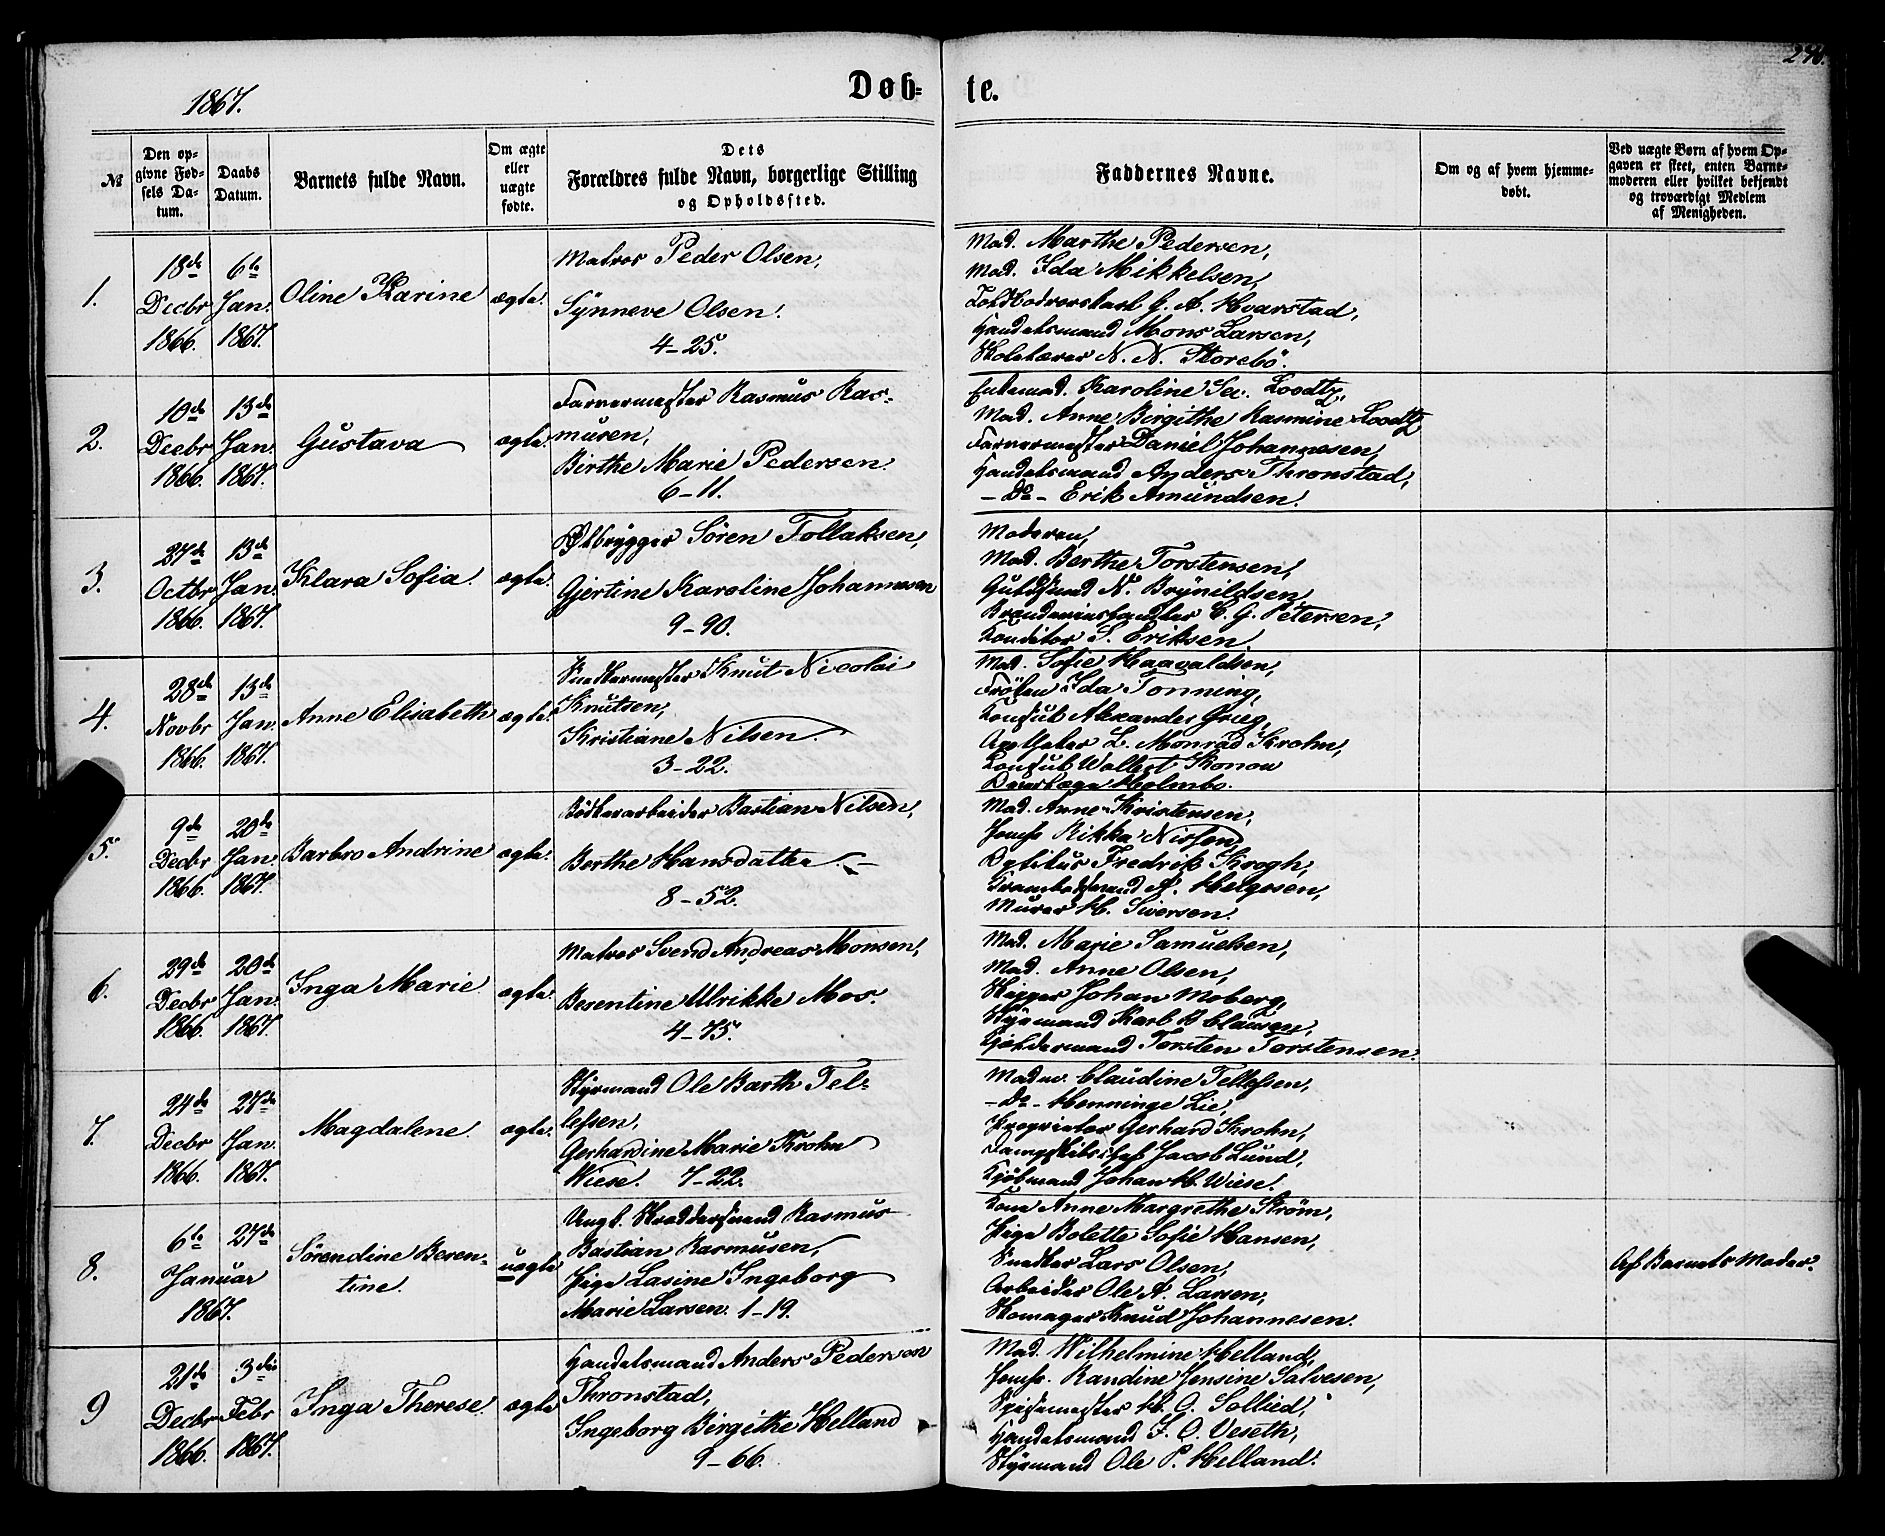 1867.
Døb-
te.
246.
№
Den op-
givne Fød-
sels Da-
tum.
Daabs
Datum.
Barnets fulde Navn.
Om ægte
eller
uægte
fødte.
Dets
Forældres fulde Navn, borgerlige Stilling
og Opholdssted.
Faddernes Navne.
Om og af hvem hjemme-
døbt.
Ved uægte Børn af hvem Op-
gaven er skeet, enten Barne-
moderen eller hvilket bekjendt
og troværdigt Medlem
af Menigheden.
1.
18de
Decbr
1866.
6te
Jan.
1867.
Oline Karine
ægte.
Matros Peder Olsen,
Synneve Olsen.
4-25.
Mad. Marthe Pedersen,
Mad. Ida Mikkelsen,
G. A. Hvarstad,
Handelsmand Mons Larsen,
Skolelærer N. N. Storebö.
2.
10de
Decbr
1866.
13de
Jan.
1867.
Gustava
ægte.
Farvermester Rasmus Ras-
musen,
Birthe Marie Pedersen.
6-11.
Enkemad. Karoline Sev. Loodtz,
Mad. Anne Birgithe Rasmine Loodtz
Farvermester Daniel Johannesen,
Handelsmand Anders Thronstad,
-Do- Erik Amundsen.
3.
27de
Octbr
1866.
13de
Jan.
1867.
Klara Sofia.
ægte.
Ølbrygger Sören Tollaksen,
Gjertine Karoline Johannesen
9-90.
Moderen,
Mad. Berthe Torstensen,
Guldsmed N. Brynildsen,
Brændeviinshandler C. G. Petersen,
Konditor S. Eriksen.
4.
28de
Novbr
1866.
13de
Jan.
1867.
Anne Elisabeth
ægte.
Snedkermester Knut Nicolai
Knutsen,
Kristiane Nilsen.
3-22.
Mad. Sofie Haavaldsen,
Fröken Ida Tonning,
Konsul Alexander Grieg,
Apotheker L. Monrad Krohn,
Konsul Wollert Konow
Overlæge Holmbo.
5.
9de
Decbr
1866.
20de
Jan.
1867.
Barbro Andrine
ægte.
Bödkerarbeider Bastian Nilsen,
Berthe Hansdatter
8-52.
Mad. Anne Kristensen,
Jomfr Rikka Nissen,
Optikus Fredrik Krogh,
Trambodsmand A. Helgesen,
Murer H. Siversen.
6.
29de
Decbr
1866.
20de
Jan.
1867.
Inga Marie
ægte.
Matros Svend Andreas Monsen,
Besentine Ulrikke Mos.
4-75.
Mad. Marie Samuelsen,
Mad. Anne Olsen,
Skipper Johan Moberg,
Styrmand Karl B Clausen,
Torsten Torstensen.
7.
24de
Decbr
1866.
27de
Jan.
1867.
Magdalene.
ægte.
Styrmand Ole Barth Tel-
lefsen,
Gerhardine Marie Krohn
Wiese. 7-22.
Madm. Claudine Tellefsen,
-Do- Henninge Lie,
Proprietær Gerhard Krohn,
Jacob Lund,
Kjöbmand Johan H. Wiese.
8.
6te
Januar
1867.
27de
Sörendine Beren-
tine.
uægte
Ungk. Skræddersvend Rasmus
Bastian Rasmusen,
Pige Lasine Ingeborg
Marie Larsen. 1-19.
Kone Anne Margrethe Ström,
Pige Bolette Sofie Hansen,
Snedker Lars Olsen,
Arbeider Ole A. Larsen,
Skomager Knud Johannesen.
Af Barnets Moder.
9
21de
Decbr
1866.
3die
Febr
1867.
Inga Therese.
ægte
Handelsmand Anders Pedersen
Thronstad,
Ingeborg Birgithe Helland
9-66.
Mad. Wilhelmine Helland,
Jomfr. Randine Jensine Salvesen,
Spisemester H. O. Sollied,
Handelsmand I. O. Veseth,
Styrmand Ole P. Helland.